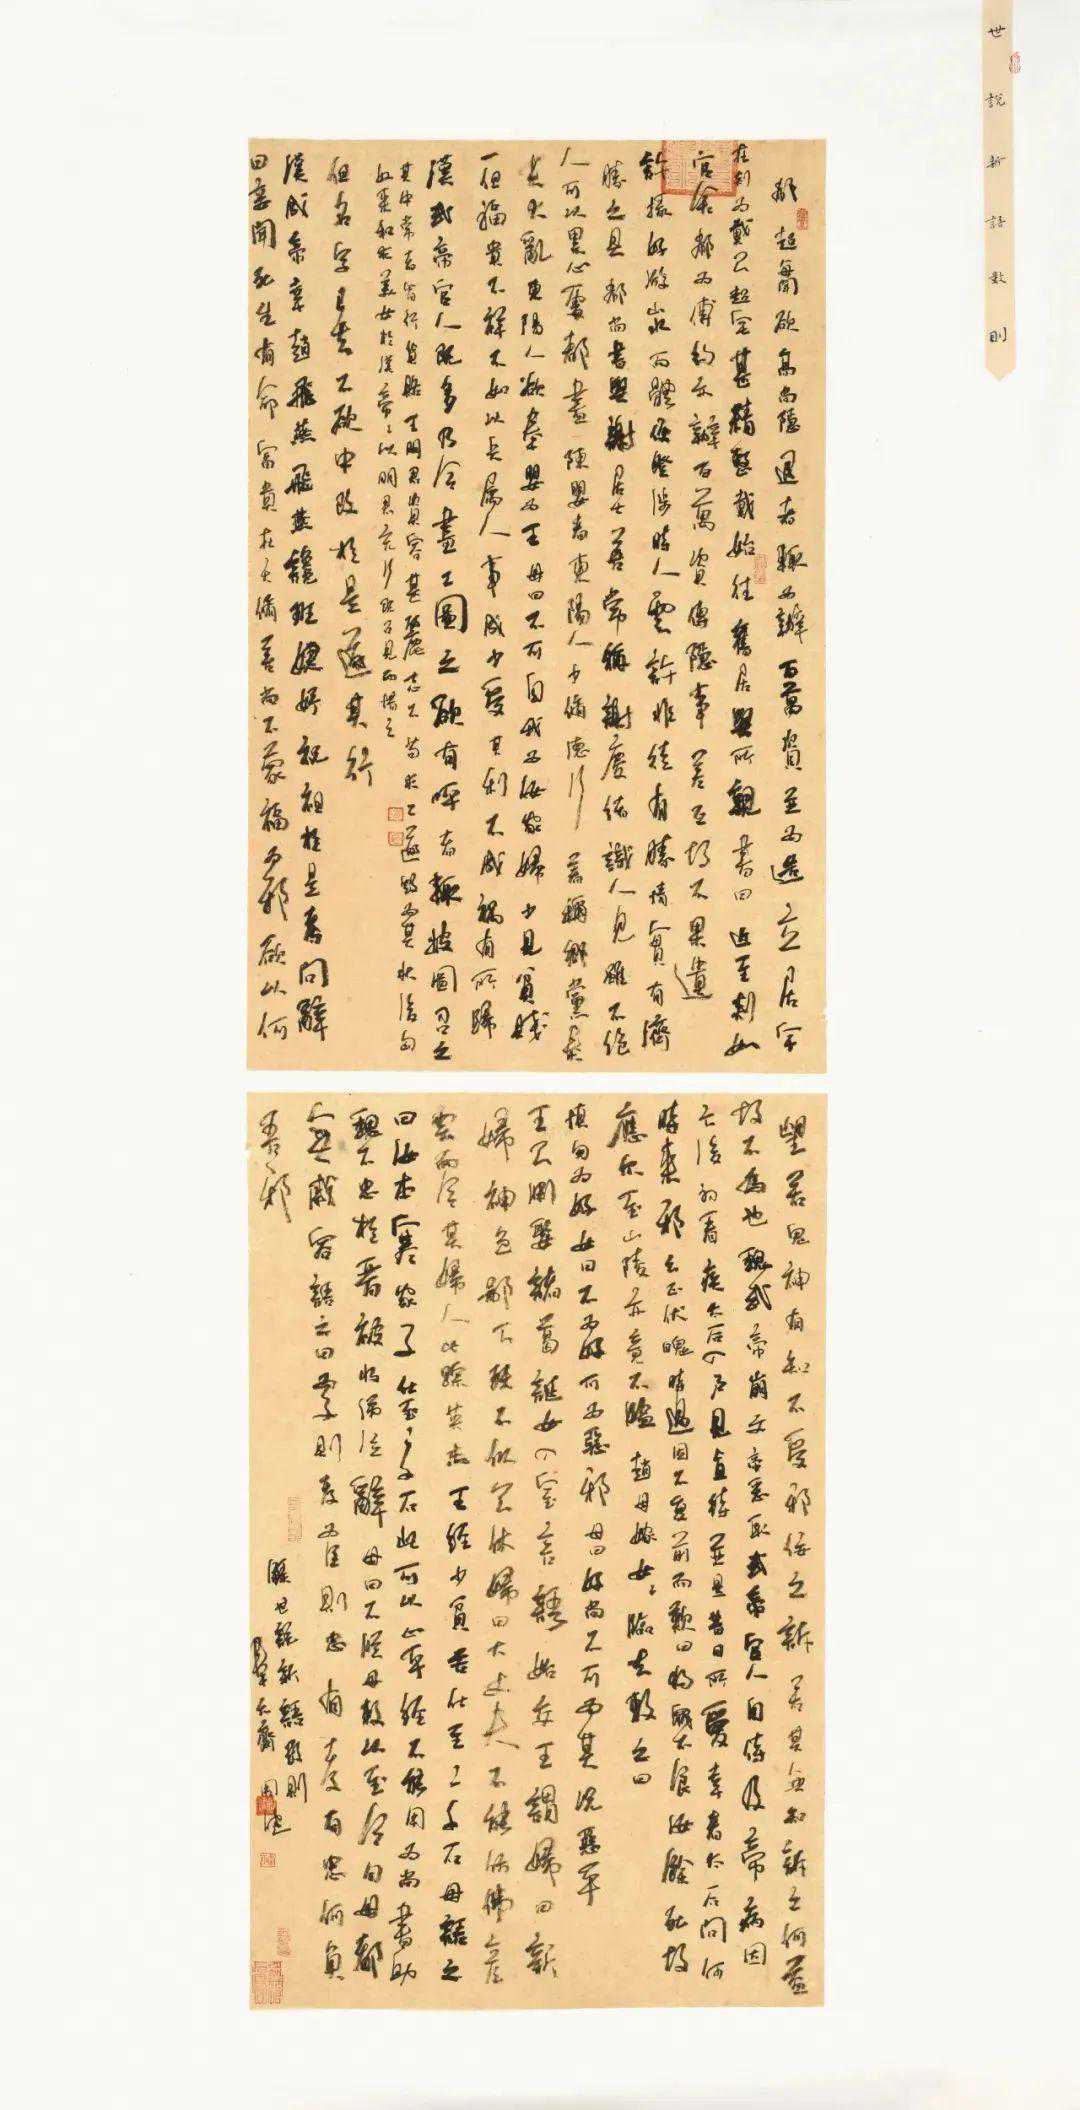 世說新語數則
郗超每聞欲高尚隱退者輒為辦百萬資並為造立居宇
在剡為戴公起宅甚精整戴始往舊居與所親書曰近至剡如
官舍郗為傅約亦辦百萬資傅隱事差互故不果遺
許掾好游山水而體便登陟時人云許非徒有勝情實有濟
勝之具郗尚書與謝居士善常稱謝慶緒識人見雖不絕
人可以累心處都盡陳嬰者東陽人少脩德行著稱鄉黨秦
末大亂東陽人欲奉嬰為王母曰不可自我為汝家婦少見貧賤
一但福貴不祥不如以兵屬人事成少受其利不成禍有所歸
漢武帝宮人既多乃令畫工圖之欲有呼者輒披圖召之
其中常者皆行貨賂王明君姿容甚麗志不苟求工遂毀為其狀後匈
奴來和求美女於漢帝〻以明君充行既召見而惜之
但名字已去不欲中改於是遂其行
漢成帝幸趙飛燕飛燕讒班婕妤祝詛於是考問辭
曰妾聞死生有命富貴在天脩善尚不蒙福為邪欲以何
望若鬼神有知不受邪佞之訴若其無知訴之何益
故不為也魏武帝崩文帝悉取武帝宮人自侍及帝病因
亡後初看疾太后入戶見直侍並是昔日所愛幸者太后問何
時來邪云正伏魄時過因不復前而歎曰狗鼠不食汝餘死故
應爾至山陵亦竟不臨趙母嫁女〻臨去敕之曰
慎勿為好女曰不為好可為惡邪母曰好尚不可為其況惡乎
王公淵娶諸葛誕女入室言語始交王謂婦曰新
婦神色卑下殊不似公休婦曰大丈夫不能彷彿彥
雲而令其婦人比蹤英傑王經少貧苦仕至二千石母語之
曰汝本寒家子仕至二千石此可以止乎經不能用為尚書助
魏不忠於晉被收涕泣辭母曰不從母敕以至今日母都
無慼容語之曰為子則孝為臣則忠有孝有忠何負
吾邪
錄世說新語數則